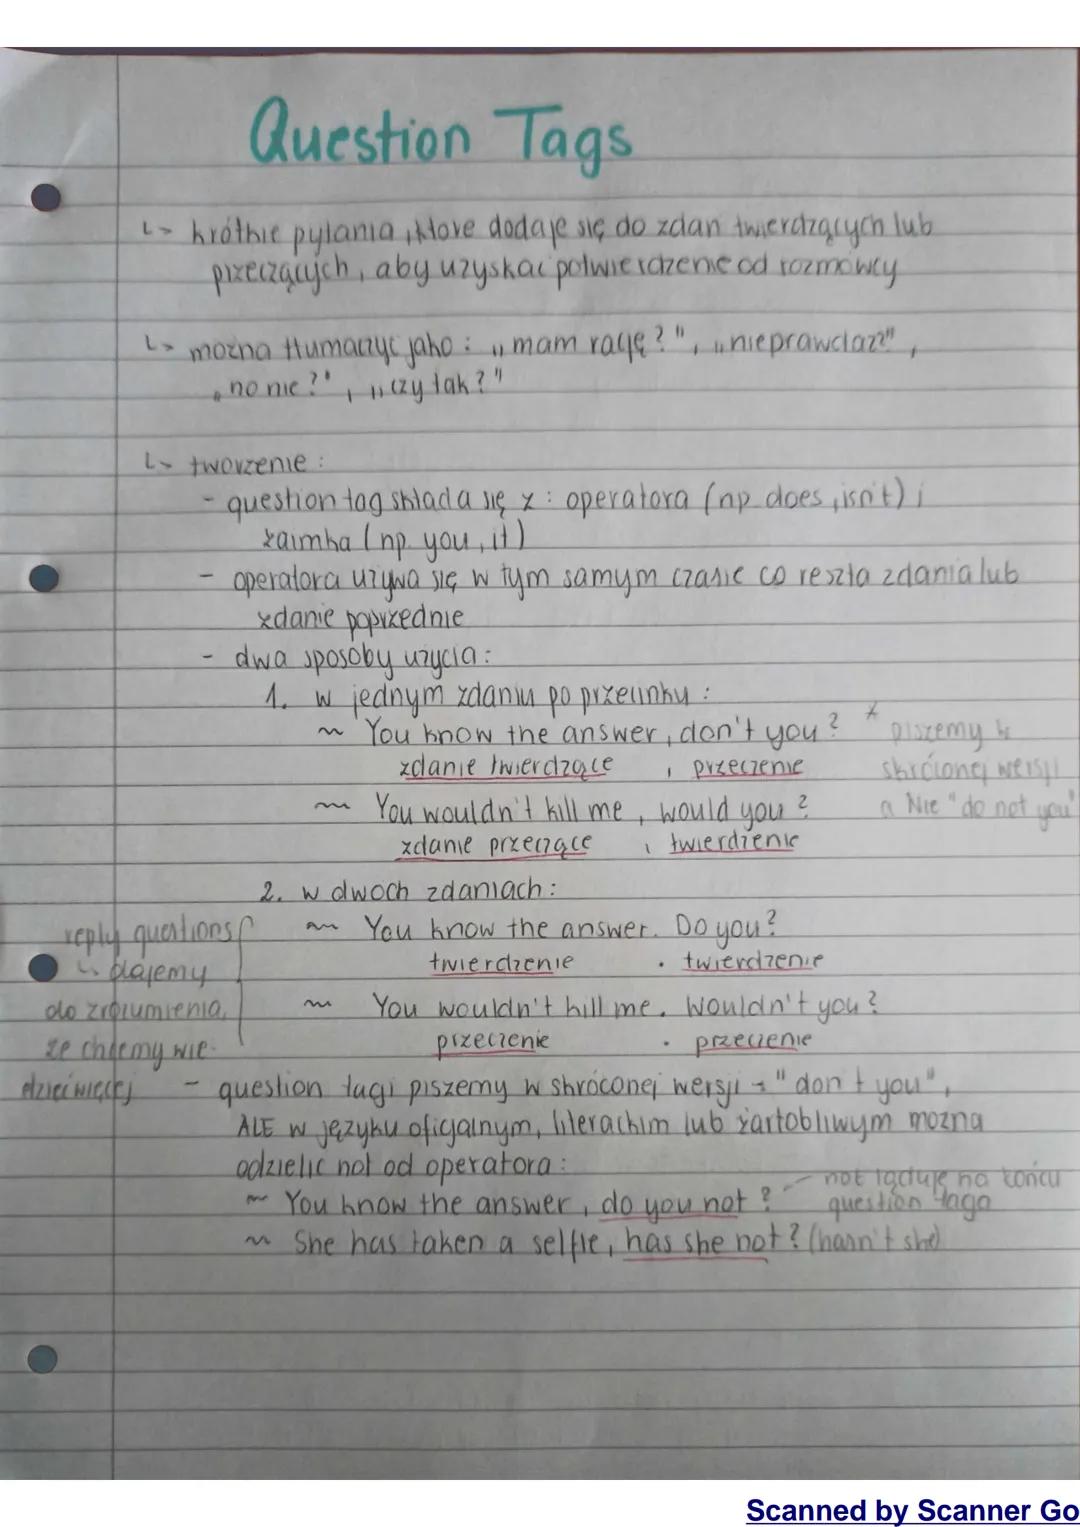 Question Tags
↳ krótkie pytania, które dodaje się do zdan twierdzących lub
przeczących, aby uzyskac potwierdzenie od rozmówcy
↳ mozna tłumaczyc jako: „mam rację?", „nieprawdaż?",
„no nie?", „czy tak?"
↳ tworzenie:
- question tag składa się z: operatora (np. does, isn't) i
zaimka (np. you, it)
- operatora używa się w tym samym czasie co reszta zdania lub
zdanie poprzednie
- dwa sposoby użycia:
1. w jednym zdaniu po przecinku:
~ You know the answer, don't you? * piszemy w
zdanie twierdzące , przeczenie skróconej wersji
~ You wouldn't kill me, would you? a Nie "do not you"
zdanie przeczące , twierdzenie
2. w dwoch zdaniach:
reply questions ~ You know the answer. Do you?
↳ dajemy twierdzenie . twierdzenie
do zrozumienia, ~ You wouldn't kill me. Wouldn't you?
że chcemy wie- przeczenie . przeczenie
dzieć więcej - question tagi piszemy w skróconej wersji → "don't you",
ALE w języku oficjalnym, literackim lub żartobliwym mozna
odzielic not od operatora:
~ You know the answer, do you not? – not ląduje na końcu
question taga
~ She has taken a selfie, has she not? (hasn't she)
Scanned by Scanner Go